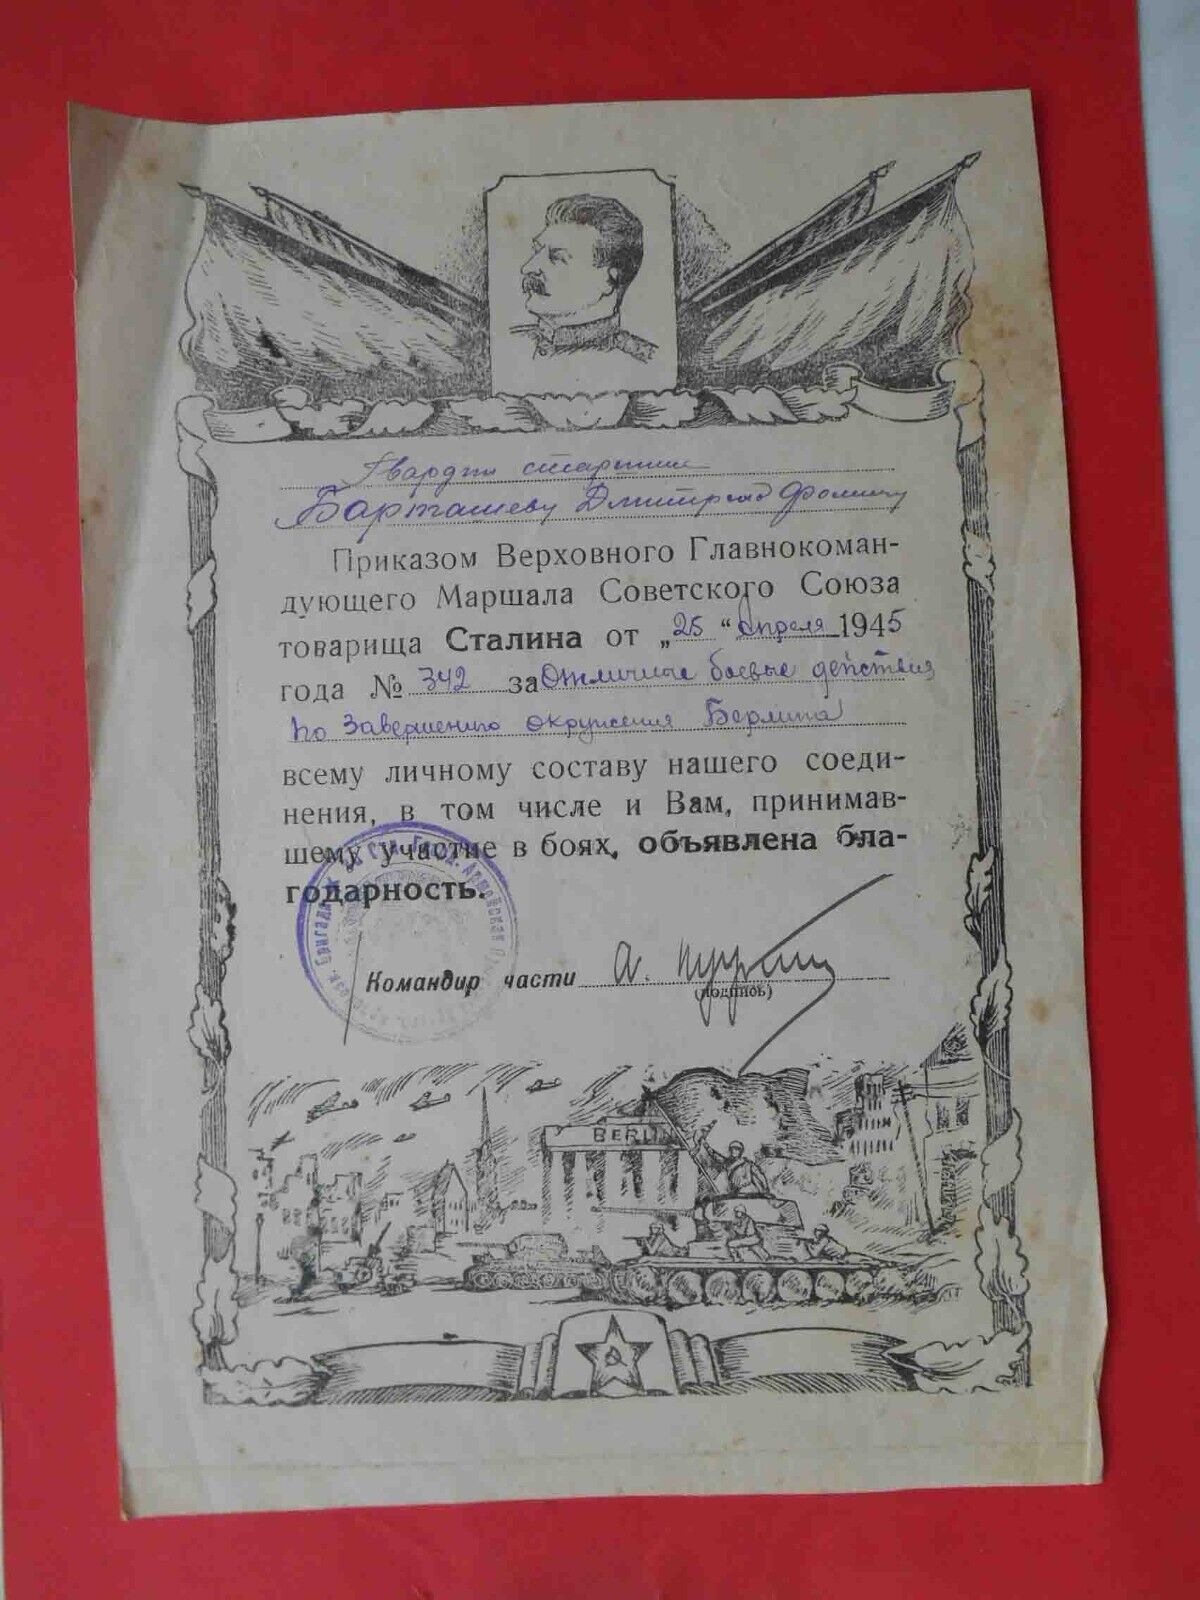 Гвардии старшине
Барташеву Дмитрию Фомичу
Приказом Верховного Главнокоман-
дующего Маршала Советского Союза
товарища Сталина от „25“ Апреля 1945
года № 342 за отличные боевые действия
по завершению окружения Берлина
всему личному составу нашего соеди-
нения, в том числе и Вам, принимав-
шему участие в боях, объявлена бла-
годарность.
Командир части А.
(подпись)
BERLIN